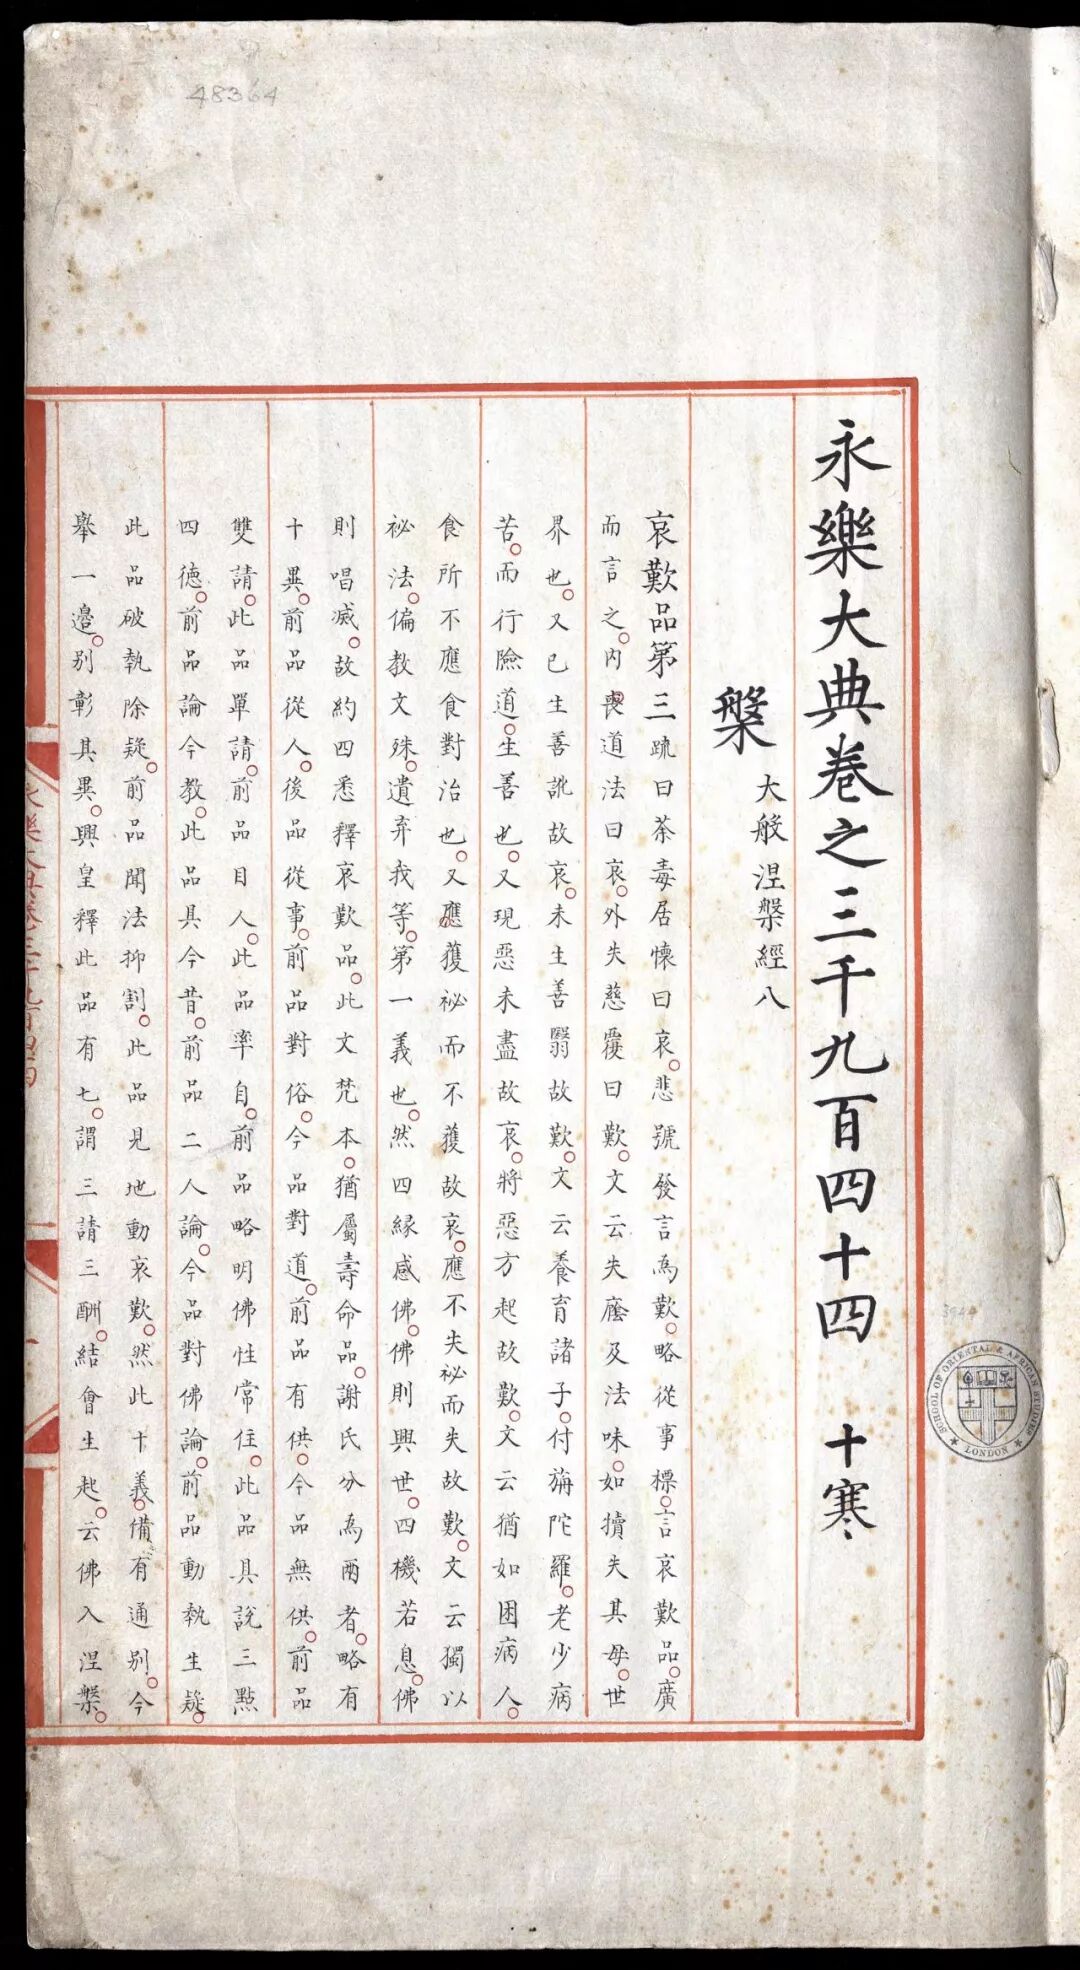 永樂大典卷之三千九百四十四 十寒
槃 大般涅槃經八
哀歎品第三疏曰荼毒居懷曰哀悲號發言為歎略從事標言哀歎品廣
而言之內喪道法曰哀外失慈覆曰歎文云失廕及法味如犢失其母世
界也又已生善訛故哀未生善翳故歎文云養育諸子付旃陀羅老少病
苦而行險道生善也又現惡未盡故哀將惡方起故歎文云猶如困病人
食所不應食對治也又應獲祕而不獲故哀應不失祕而失故歎文云獨以
祕法偏教文殊遺弃我等第一義也然四緣感佛佛則興世四機若息佛
則唱滅故約四悉釋哀歎品此文梵本猶屬壽命品謝氏分為兩者略有
十異前品從人後品從事前品對俗今品對道前品有供今品無供前品
雙請此品單請前品目人此品率自前品略明佛性常住此品具說三點
四德前品論今教此品具今昔前品二人論今品對佛論前品動執生疑
此品破執除疑前品聞法抑割此品見地動哀歎然此十義備有通別今
舉一邊別彰其異興皇釋此品有七謂三請三酬結會生起云佛入涅槃
48364
3944
SCHOOL OF ORIENTAL & AFRICAN STUDIES
LONDON